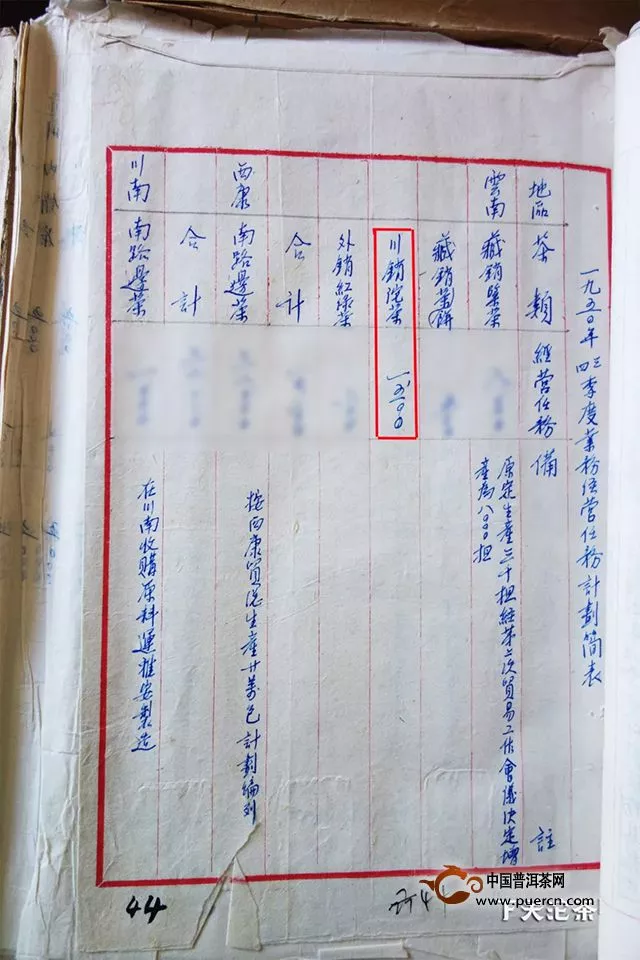 一九五〇年四三季度業務經营任務計劃简表
地區 茶類 經营任務 備註
雲南 藏銷緊茶 原定生產三千担經第二次貿易工作會議決定增
產為八〇〇〇担
藏銷圓餅
川銷沱茶 一五〇〇
外銷紅綠茶
合計
西康 南路邊茶 按西康貿總生產廿萬包計劃編列
合計
川南 南路邊茶 在川南收購原料運雅安製造
44
中国普洱茶网
www.puercn.com
下关沱茶